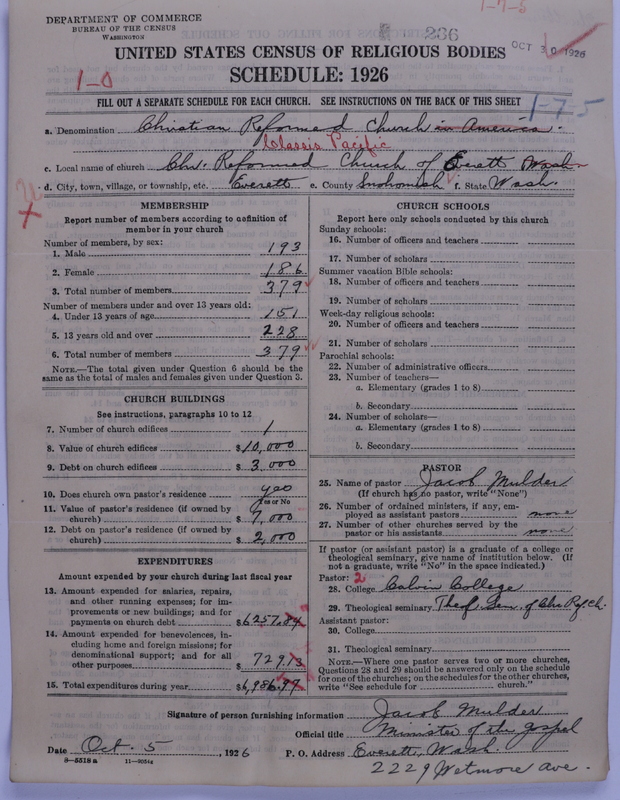 1-7-5
DEPARTMENT OF COMMERCE
BUREAU OF THE CENSUS
WASHINGTON
236
OCT 30 1926
UNITED STATES CENSUS OF RELIGIOUS BODIES
SCHEDULE: 1926
1-0
FILL OUT A SEPARATE SCHEDULE FOR EACH CHURCH. SEE INSTRUCTIONS ON THE BACK OF THIS SHEET
1-7-5
a. Denomination Christian Reformed Church in America.
Classis Pacific
c. Local name of church Chr. Reformed Church of Everett Wash.
d. City, town, village, or township, etc. Everett e. County Snohomish f. State Wash.
MEMBERSHIP
Report number of members according to definition of
member in your church
Number of members, by sex:
1. Male 193
2. Female 186
3. Total number of members 379
Number of members under and over 13 years old:
4. Under 13 years of age 151
5. 13 years old and over 228
6. Total number of members 379
NOTE.—The total given under Question 6 should be
same as the total of males and females given under Question 3.
CHURCH BUILDINGS
See instructions, paragraphs 10 to 12
7. Number of church edifices 1
8. Value of church edifices $10,000
9. Debt on church edifices $3,000
10. Does church own pastor's residence yes
Yes or No
11. Value of pastor's residence (if owned by
church) $7,000
12. Debt on pastor's residence (if owned by
church) $2,000
EXPENDITURES
Amount expended by your church during last fiscal year
13. Amount expended for salaries, repairs,
and other running expenses; for im-
provements or new buildings; and for
payments on church debt $6257.84
14. Amount expended for benevolences, in-
cluding home and foreign missions; for
denominational support; and for all
other purposes $729.13
15. Total expenditures during year $6,986.97
CHURCH SCHOOLS
Report here only schools conducted by this church
Sunday schools:
16. Number of officers and teachers
17. Number of scholars
Summer vacation Bible schools:
18. Number of officers and teachers
19. Number of scholars
Week-day religious schools:
20. Number of officers and teachers
21. Number of scholars
Parochial schools:
22. Number of administrative officers
23. Number of teachers—
a. Elementary (grades 1 to 8)
b. Secondary
24. Number of scholars—
a. Elementary (grades 1 to 8)
b. Secondary
PASTOR
25. Name of pastor Jacob Mulder
(If church has no pastor, write "None")
26. Number of ordained ministers, if any, em-
ployed as assistant pastors none
27. Number of other churches served by the
pastor or his assistants none
If pastor (or assistant pastor) is a graduate of a college or
theological seminary, give name of institution below. (If
not a graduate, write "No" in the space indicated.)
Pastor: 2
28. College Calvin College
29. Theological seminary Theol Sem. of Chr Ref. Ch.
Assistant pastor:
30. College
31. Theological seminary
NOTE.—Where one pastor serves two or more churches,
Questions 28 and 29 should be answered only on the schedule
for one of the churches; on the schedules for the other churches,
write "See schedule for church."
Signature of person furnishing information Jacob Mulder
Official title Minister of the Gospel
Date Oct. 5, 1926 P. O. Address Everett, Wash.
8-5518 a 11-9051g
2229 Wetmore Ave.